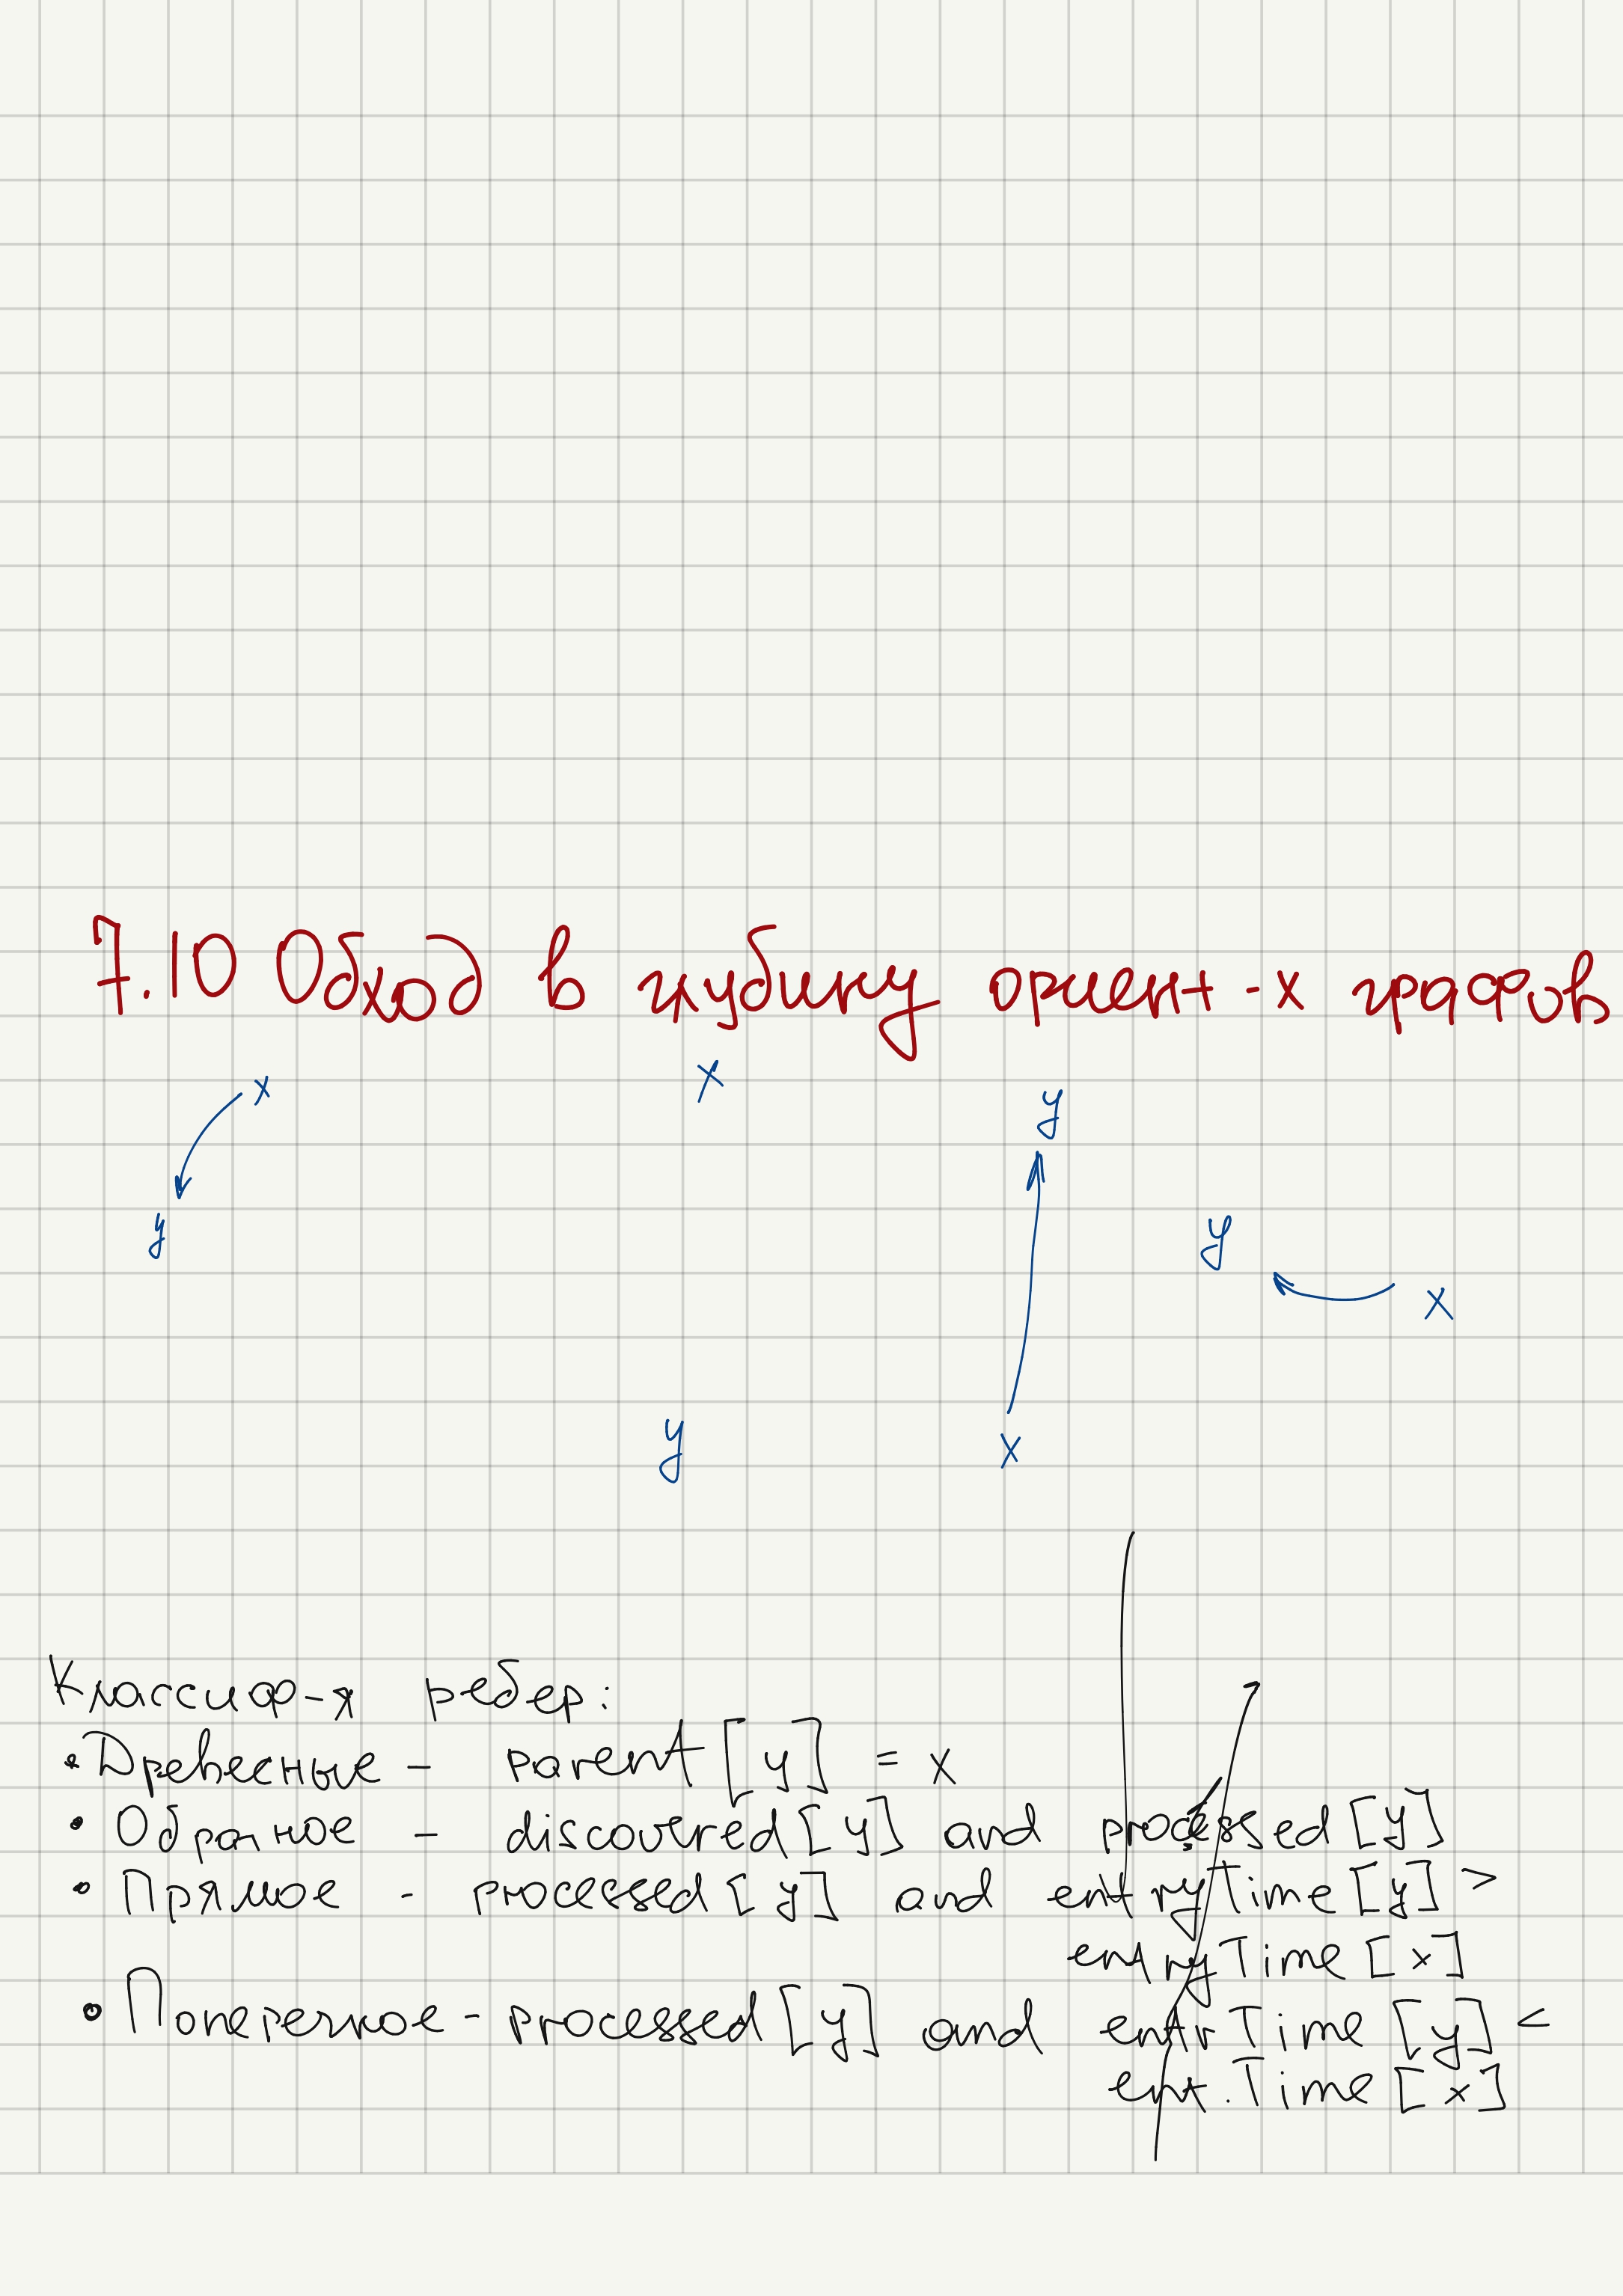 7.10 Обход в глубину ориент-х графов
x
x
y
y
y
x
y
x
Классиф-я ребер:
• Древесные - parent[y] = x
• Обратное - discovered[y] and processed[y]
• Прямое - processed[y] and entryTime[y] >
entryTime[x]
• Поперечное - processed[y] and entrTime[y] <
ent.Time[x]